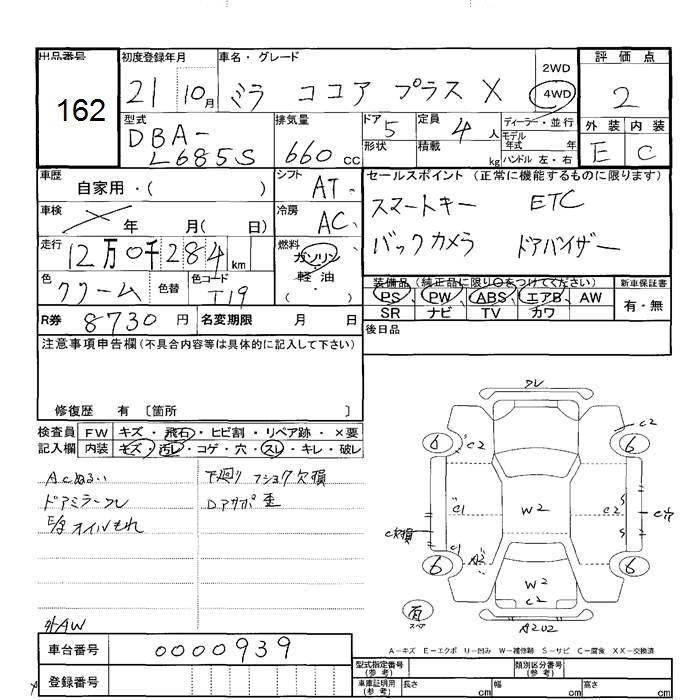 出品番号 初度登録年月 車名・グレード 2WD 4WD 評価点
162 21 10月 ミラ ココア プラス X 2
型式 排気量 ドア 定員 ディーラー・並行 外装 内装
DBA-L685S 660cc 5 4人 モデル年式 年 E C
形状 積載 kg ハンドル 左・右
車歴 シフト セールスポイント (正常に機能するものに限ります)
自家用・( ) AT
スマートキー ETC
車検 年 月( 日) 冷房 AC
バックカメラ ドアバイザー
走行 12万0千284km 燃料 ガソリン・軽油・( )
色 クリーム 色替 色コード T19
装備品(純正品に限り○をつけてください) 新車保証書
PS、PW、ABS、エアB、AW 有・無
SR ナビ TV カワ
R券 8730円 名変期限 月 日
後日品
注意事項申告欄(不具合内容等は具体的に記入して下さい)
修復歴 有 〔箇所 〕
検査員記入欄 FW キズ・飛石・ヒビ割・リペア跡・×要
内装 キズ・汚レ・コゲ・穴・スレ・キレ・破レ
Acぬるい 下廻り フショク欠損
ドアミラーワレ Dアサポ 歪
E/g オイルもれ
外AW
ワレ
C2
6 C2 6
C1 W2 C2 S
C欠損 C穴
C1 A2 S
6 W2 6
C2
有 スペア A2U2
A-キズ E-エクボ U-凹み W-補修跡 S-サビ C-腐食 XX-交換済
車台番号 0000939
登録番号
型式指定番号(参考) 類別区分番号(参考)
車庫証明用(参考) 長さ cm 幅 cm 高さ cm